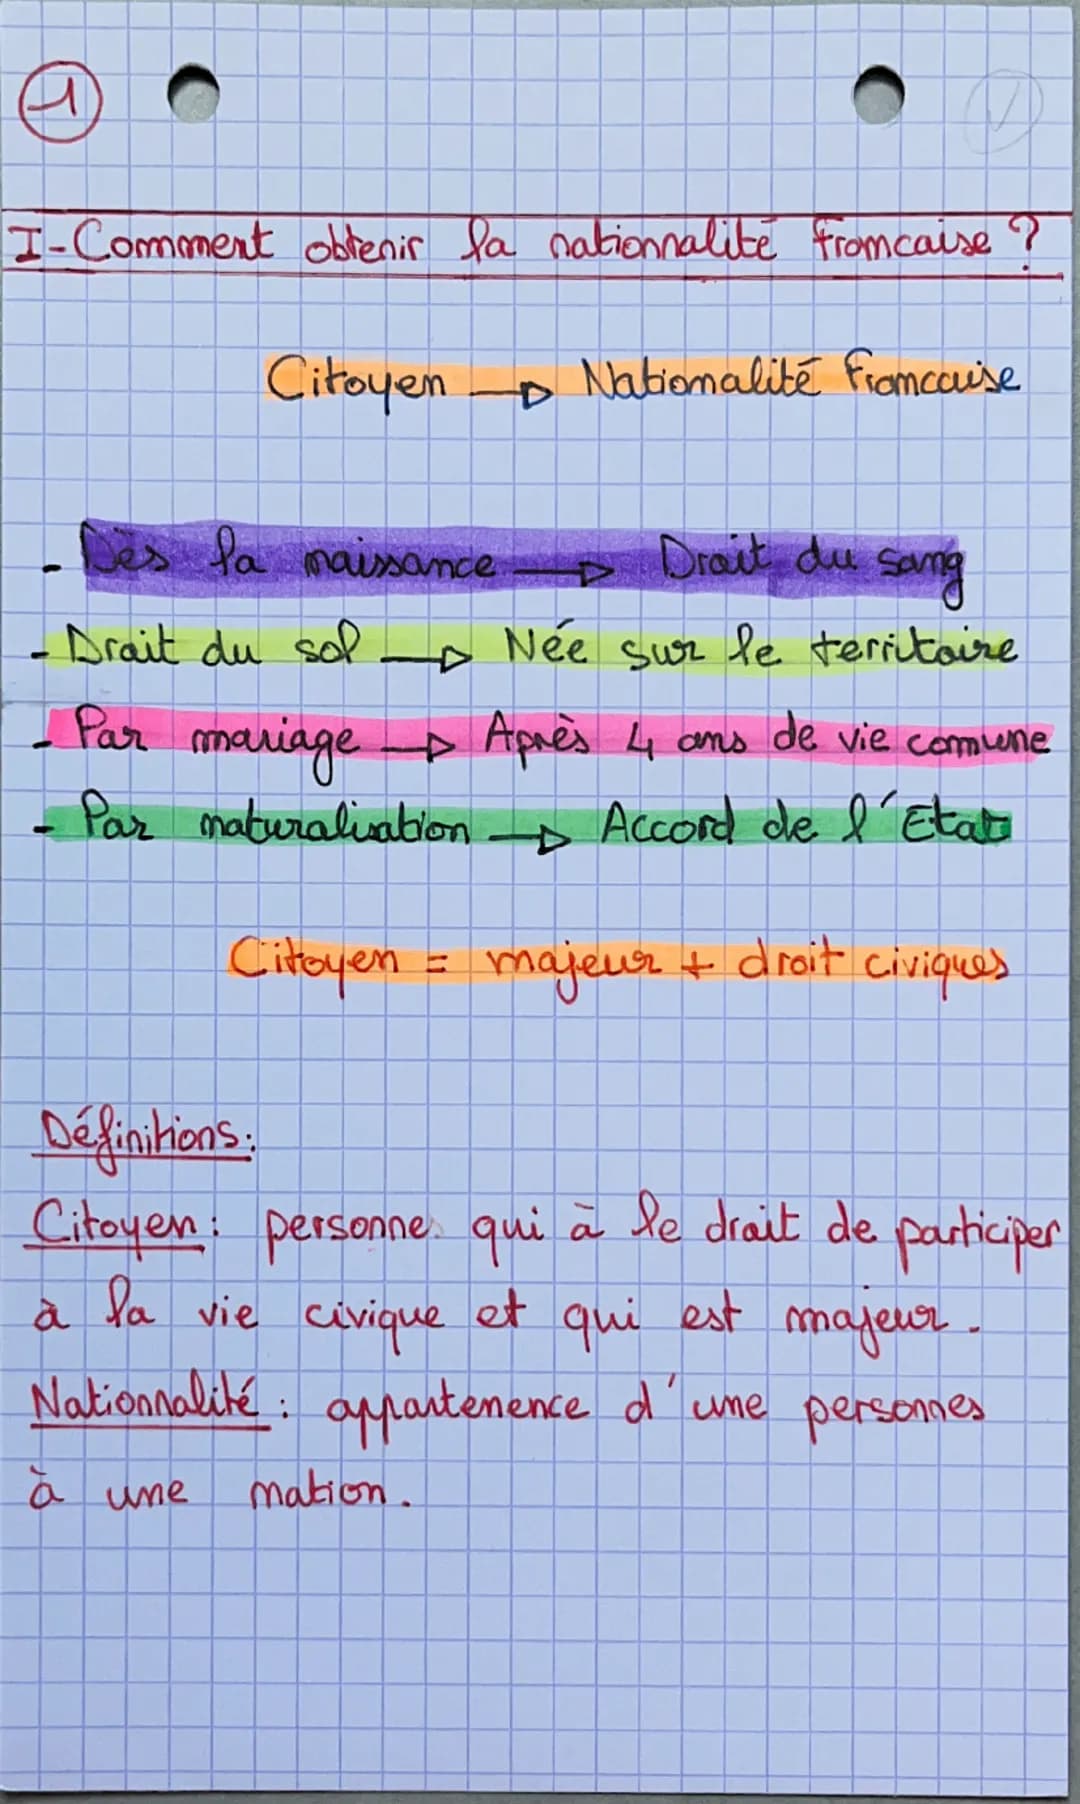 1
I-Comment obtenir la nationnalité francaise ?
Citoyen → Nationalité francaise
- Dès la naissance → Droit du sang
- Droit du sol → Née sur le territoire
- Par mariage → Après 4 ans de vie commune
- Par naturalisation → Accord de l'Etat
Citoyen = majeur + droit civiques
Définitions:
Citoyen: personne qui à le droit de participer
à la vie civique et qui est majeur.
Nationnalité: appartenence d'une personnes
à une nation.